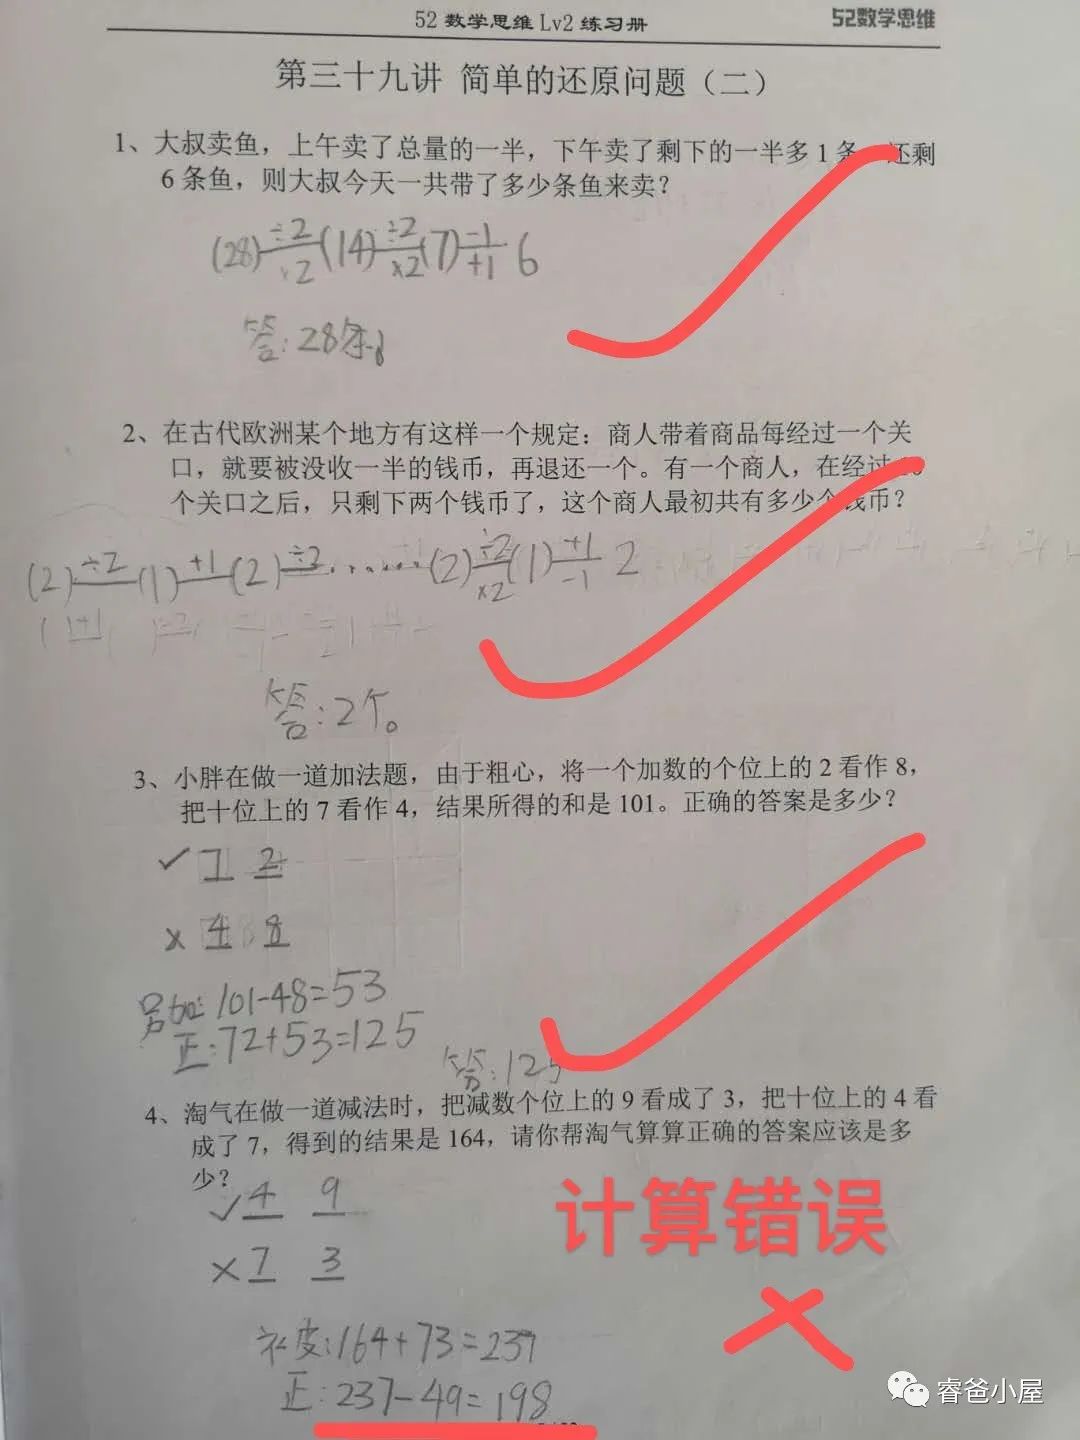 52 数学思维 Lv2 练习册
52数学思维
第三十九讲 简单的还原问题（二）
1、大叔卖鱼，上午卖了总量的一半，下午卖了剩下的一半多 1 条 还剩
6 条鱼，则大叔今天一共带了多少条鱼来卖？
(28) ÷2 ×2 (14) ÷2 ×2 (7) −1 +1 6
答：28条。
2、在古代欧洲某个地方有这样一个规定：商人带着商品每经过一个关
口，就要被没收一半的钱币，再退还一个。有一个商人，在经过
个关口之后，只剩下两个钱币了，这个商人最初共有多少个钱币？
(2) ÷2 (1) +1 (2) ÷2 ...... (2) ÷2 ×2 (1) +1 −1 2
答：2个。
3、小胖在做一道加法题，由于粗心，将一个加数的个位上的 2 看作 8，
把十位上的 7 看作 4，结果所得的和是 101。正确的答案是多少？
✓ 7 2
× 4 8
另加：101-48=53
正：72+53=125
答：125
4、淘气在做一道减法时，把减数个位上的 9 看成了 3，把十位上的 4 看
成了 7，得到的结果是 164，请你帮淘气算算正确的答案应该是多
少？
✓ 4 9
× 7 3
计算错误
衤皮：164+73=237
正：237-49=198
睿爸小屋